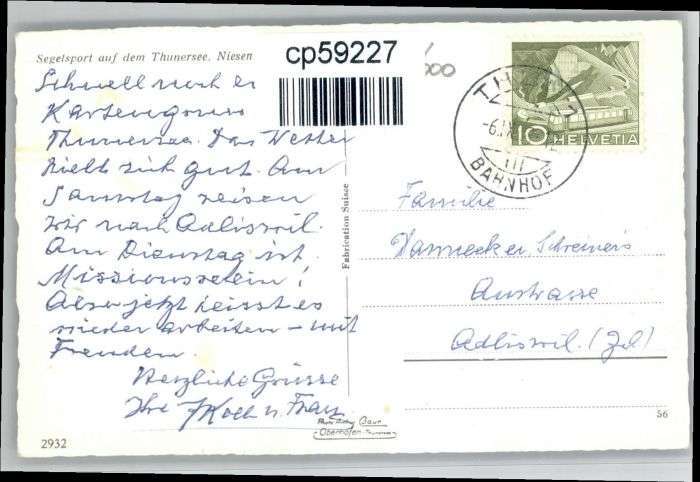 Segelsport auf dem Thunersee, Niesen
cp59227
Schnell noch ei
Kartengruss
Thunersee. Das Wetter
hielt sich gut. Am
Samstag reisen
wir nach Adliswil.
Am Dienstag ist
Missionsverein!
Also jetzt heisst es
wieder arbeiten – mit
Freuden.
Herzliche Grüsse
Ihre J Koch u. Frau
2932
Fabrication Suisse
THUN
BAHNHOF
10 HELVETIA
Familie
Dannecker Schreiners
Austrasse
Adliswil. (Zch.)
Oberhofen
56